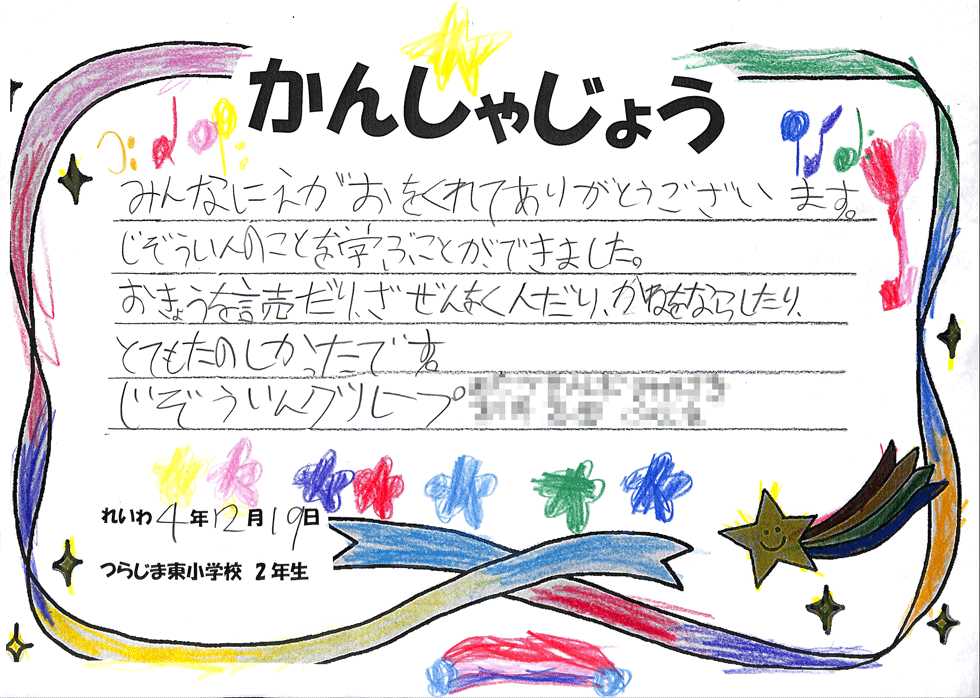 かんしゃじょう
みんなにえがおをくれてありがとうございます。
じぞういんのことを学ぶことができました。
おきょうを読だり、ざぜんなく人だり、かねをならしたり、
とてもたのしかったです。
じぞういんグループ
れいわ4年12月19日
つらじま東小学校 2年生